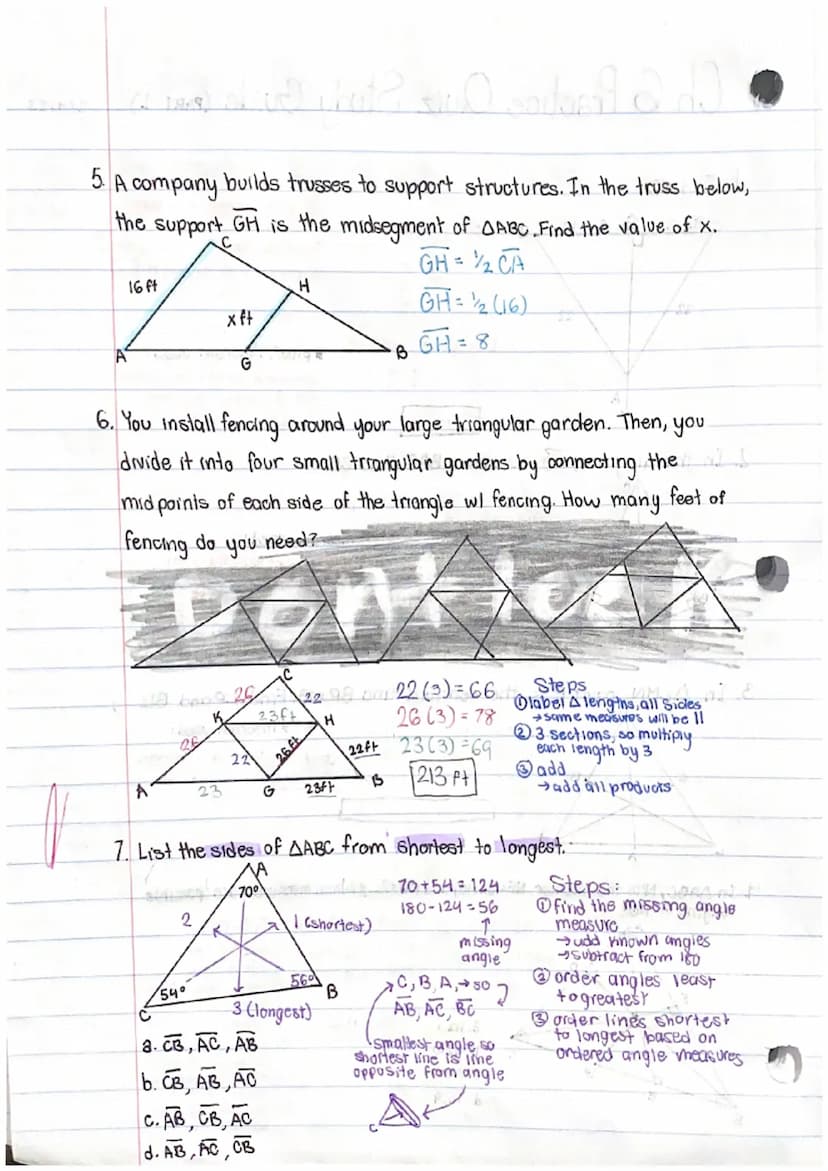 5. A company builds trusses to support structures. In the truss below,
the support GH is the midsegment of ΔABC. Find the value of x.
C
16 ft
H
x ft
A
G
B
GH = 1/2 CA
GH = 1/2 (16)
GH = 8
6. You install fencing around your large triangular garden. Then, you
divide it into four small triangular gardens by connecting the
midpoints of each side of the triangle w/ fencing. How many feet of
fencing do you need?
Don't look
C
26
22
K
23ft
H
26
22
26ft
22ft
A
23
G
23ft
B
22(3)=66
26(3)=78
23(3)=69
213 ft
Steps
① label Δ lengths, all sides
→ same measures will be ||
② 3 sections, so multiply
each length by 3
③ add
→ add all products
7. List the sides of ΔABC from shortest to longest.
A
70°
2
1 (shortest)
54°
56°
C
B
3 (longest)
70+54=124
180-124=56
↑
missing
angle
→C, B, A, → so
AB, AC, BC
smallest angle so
shortest line is line
opposite from angle
C
Steps:
① find the missing angle
measure
→ add known angles
→ subtract from 180
② order angles least
to greatest
③ order lines shortest
to longest based on
ordered angle measures
a. CB, AC, AB
b. CB, AB, AC
c. AB, CB, AC
d. AB, AC, CB